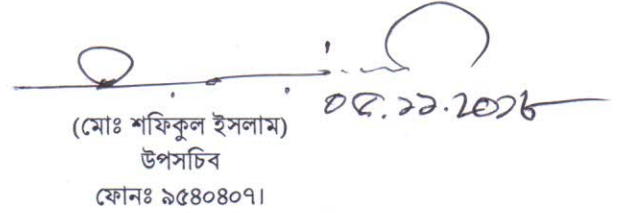 ০৫.১১.২০১৮
(মোঃ শফিকুল ইসলাম)
উপসচিব
ফোনঃ ৯৫৪০৪০৭।